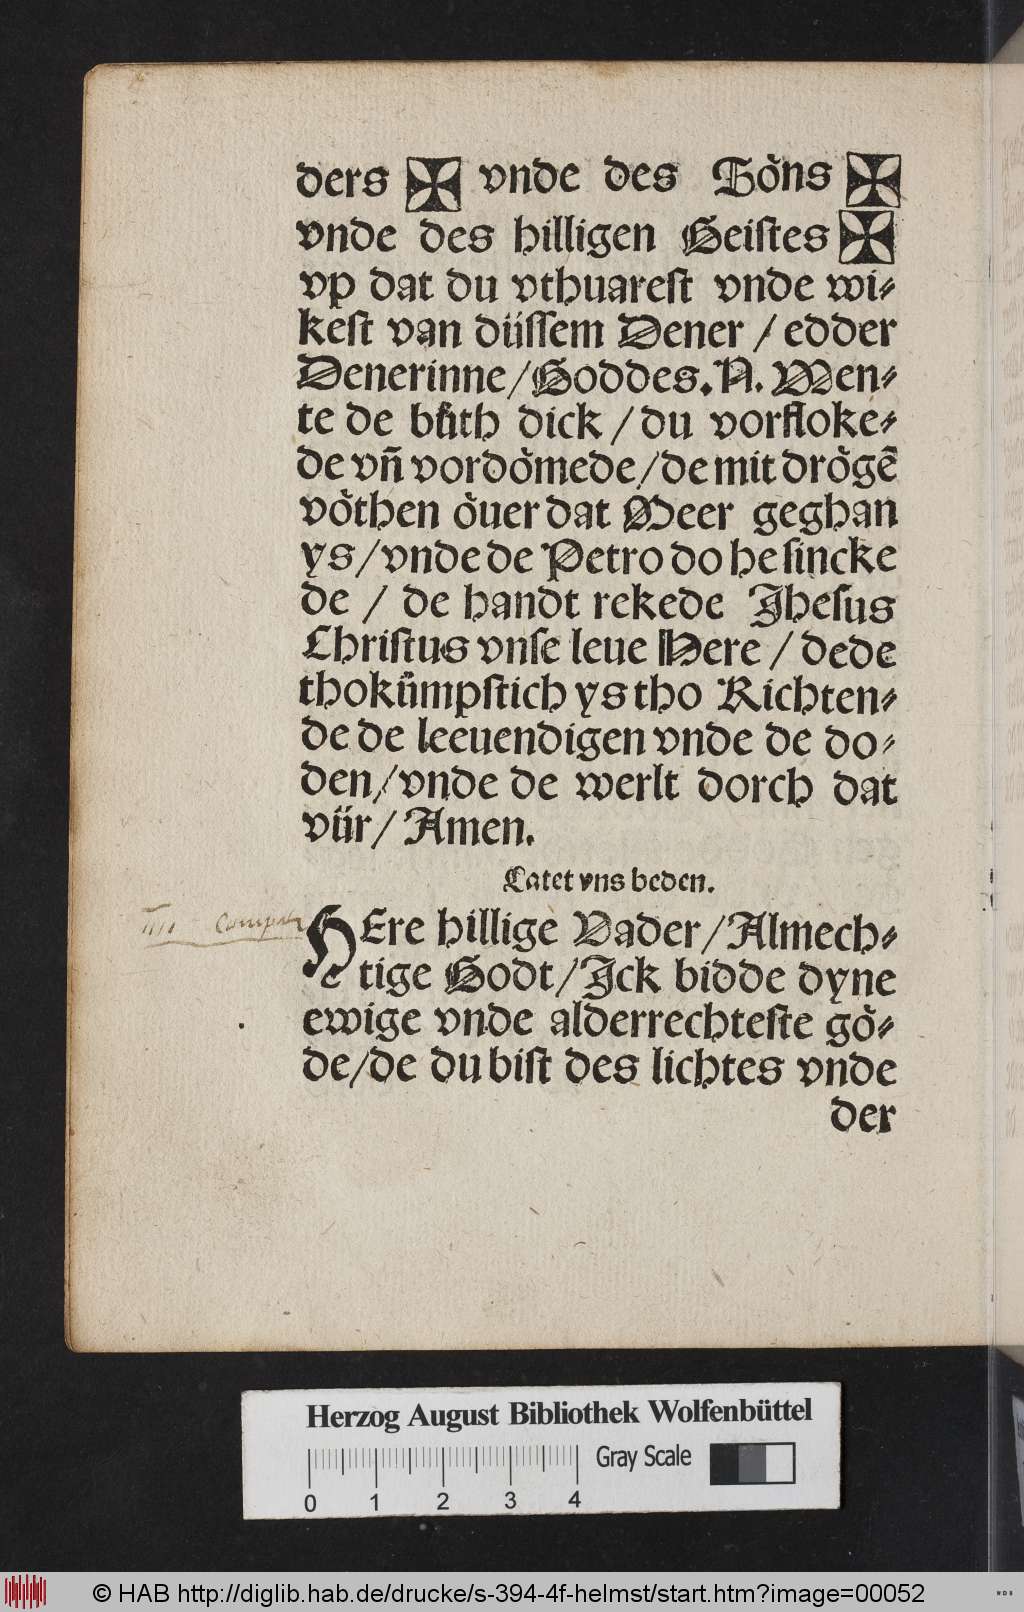 ders ✠ vnde des Soͤns ✠
vnde des hilligen Geistes ✠
vp dat du vthuarest vnde wi⸗
kest van duͤssem Dener / edder
Denerinne / Goddes. N. Wen⸗
te de buͤth dick / du vorfloke⸗
de vn̄ vordoͤmede / de mit droͤgē
voͤthen oͤuer dat Meer geghan
ys / vnde de Petro do he sincke
de / de handt rekede Jhesus
Christus vnse leue Here / dede
thokuͤmpstich ys tho Richten⸗
de de leeuendigen vnde de do⸗
den / vnde de werlt dorch dat
vuͤr / Amen.
Latet vns beden.
HEre hillige Vader / Almech⸗
tige Godt / Jck bidde dyne
ewige vnde alderrechteste goͤ⸗
de / de du bist des lichtes vnde
der
Herzog August Bibliothek Wolfenbüttel
Gray Scale
0 1 2 3 4
© HAB http://diglib.hab.de/drucke/s-394-4f-helmst/start.htm?image=00052